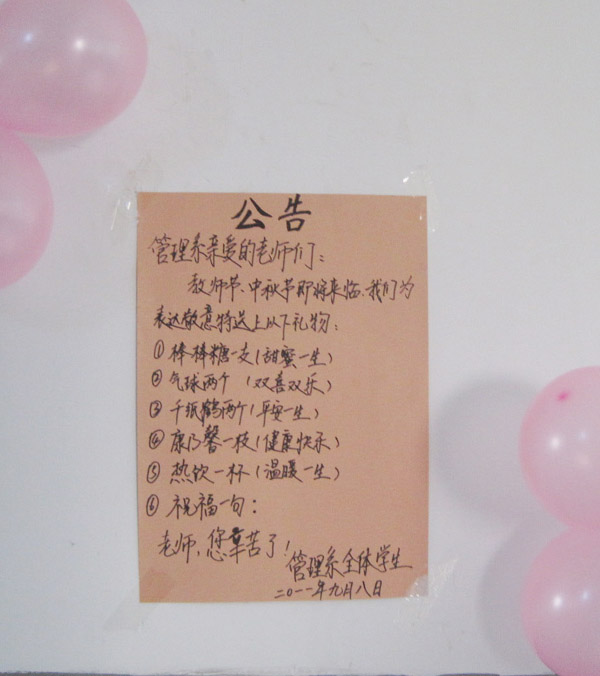 公告
管理系亲爱的老师们：
教师节、中秋节即将来临、我们为
表达敬意特送上以下礼物：
①棒棒糖一支（甜蜜一生）
②气球两个（双喜双乐）
③千纸鹤两个（平安一生）
④康乃馨一枝（健康快乐）
⑤热饮一杯（温暖一生）
⑥祝福一句：
老师、您辛苦了！
管理系全体学生
二〇一一年九月八日